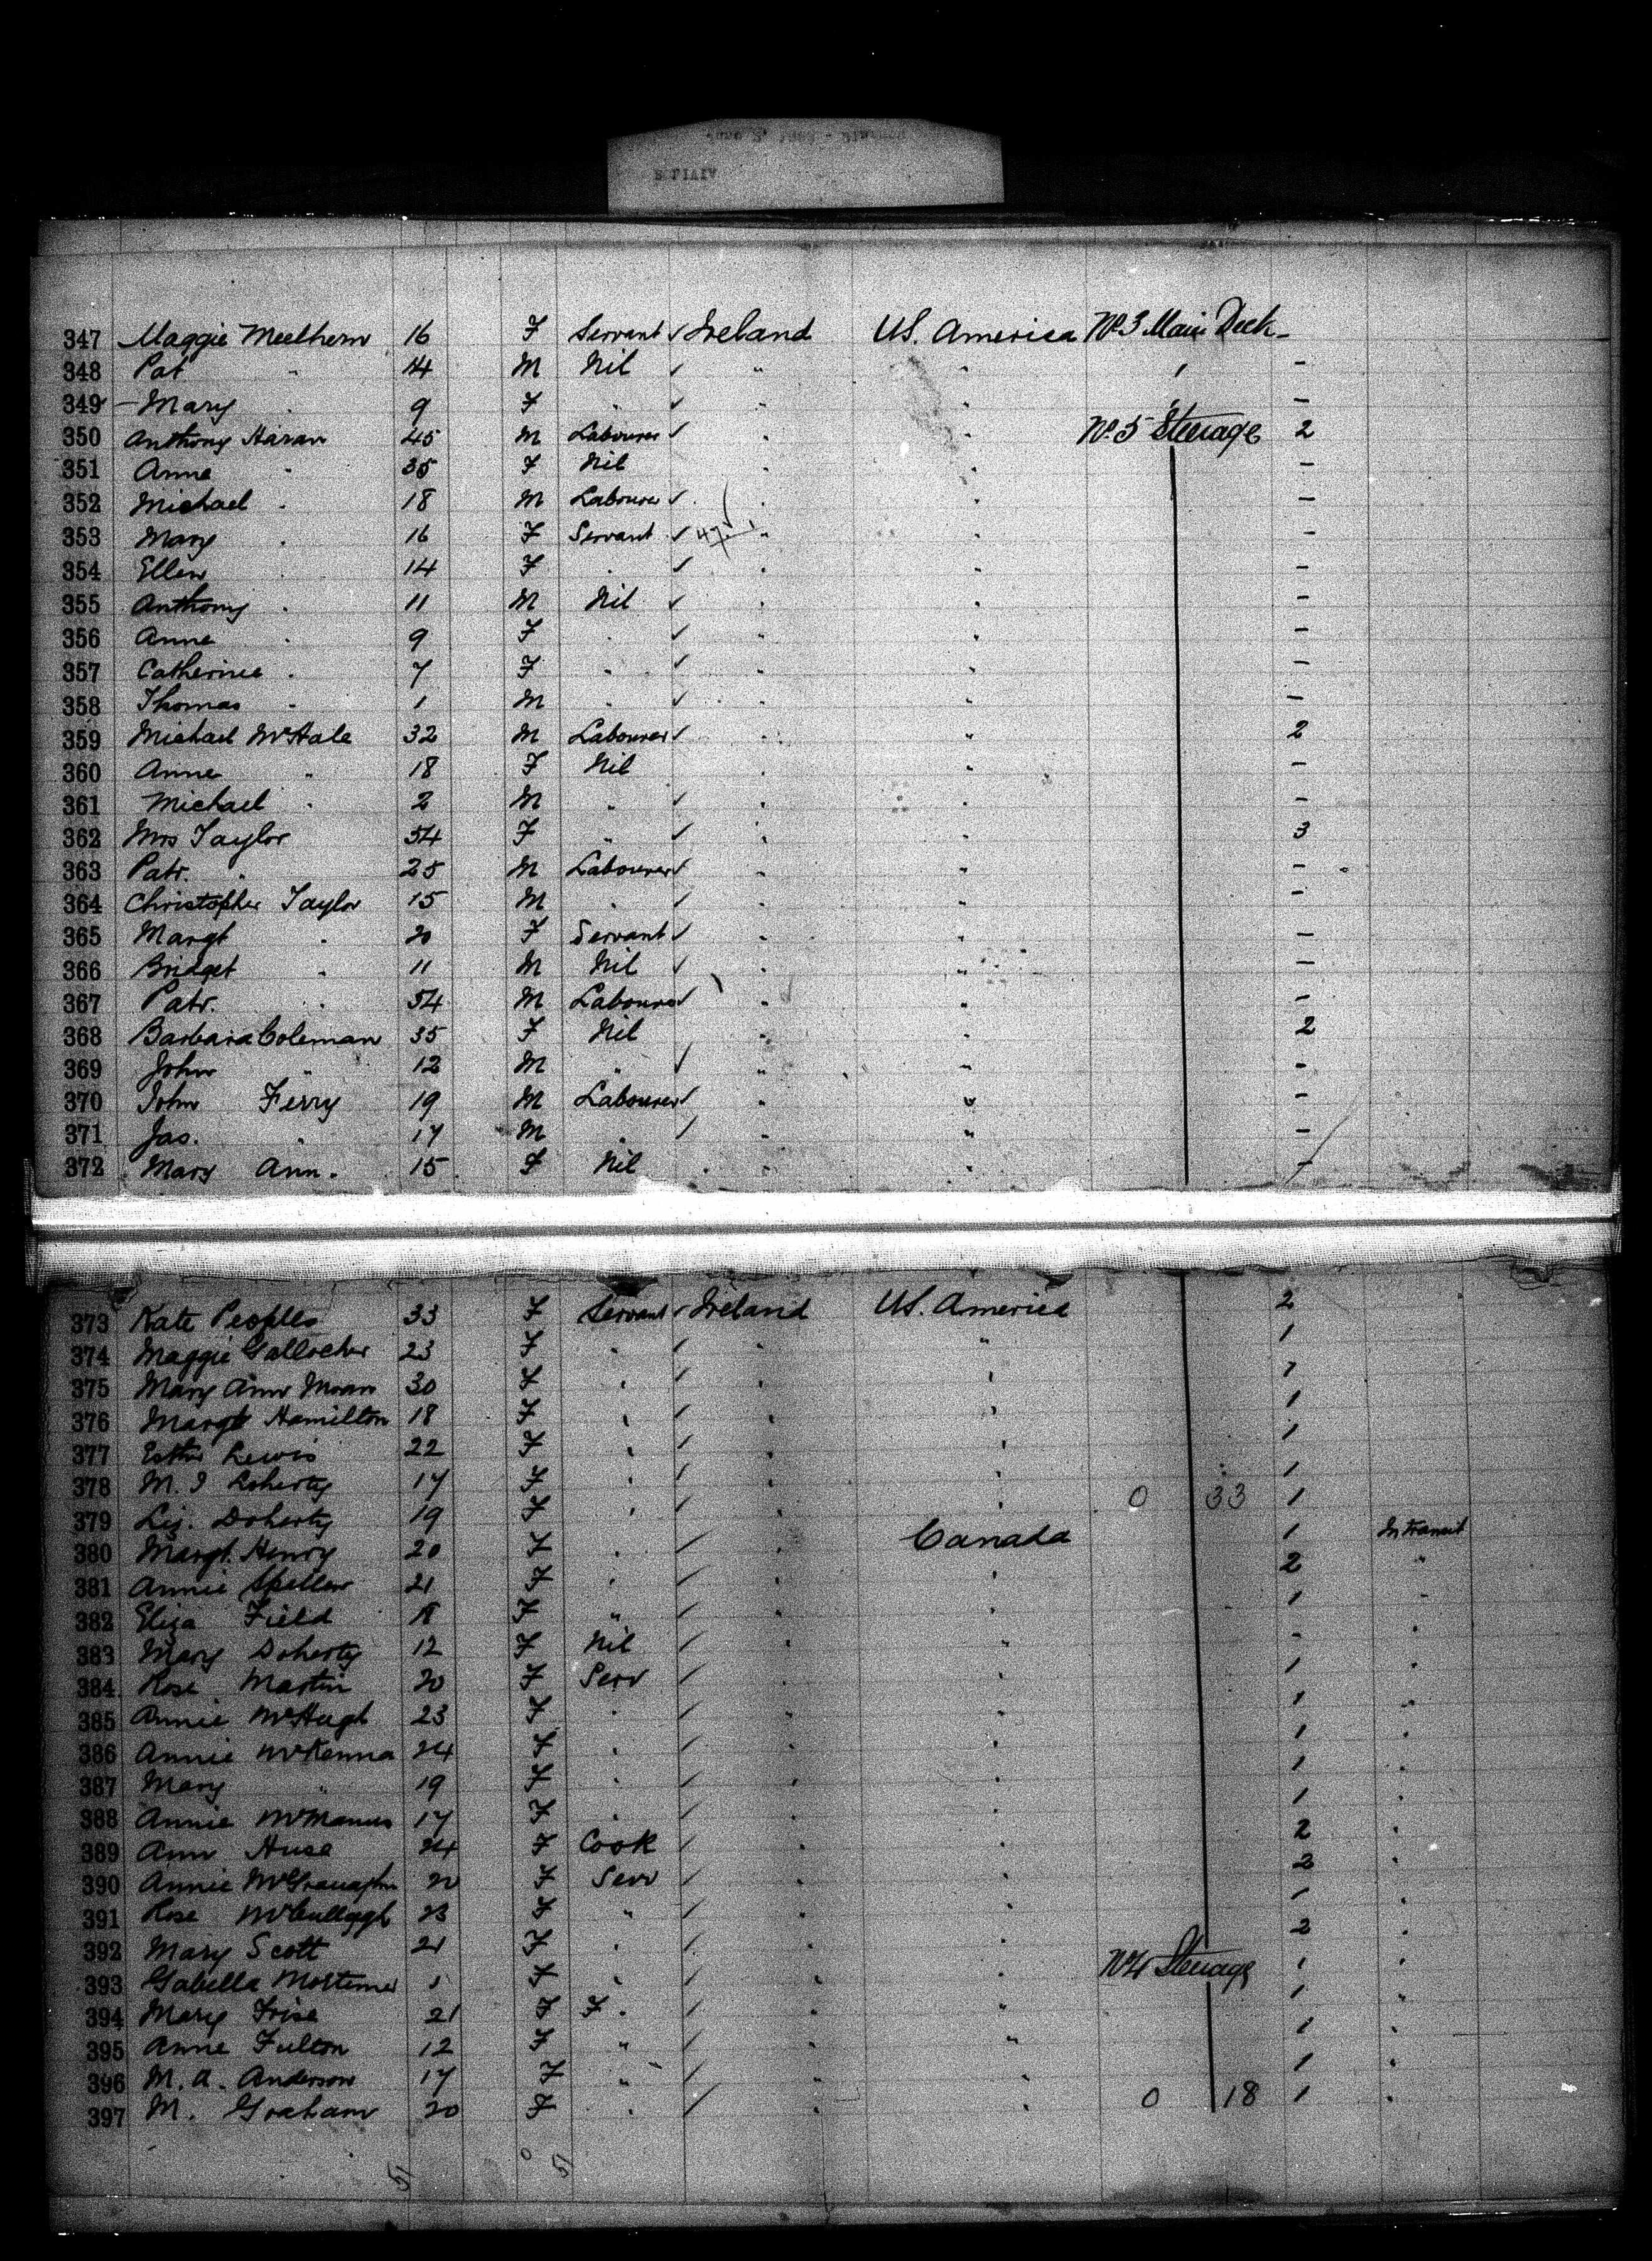 347 Maggie Meelhern 16 F Servant ✓ Ireland US. America No 3 Main Deck -
348 Pat " 14 M Nil ✓ " " " -
349 - Mary " 9 F " ✓ " " " -
350 Anthony Haran 45 M Labourer ✓ " " No. 5 Steerage 2
351 Anne " 35 F Nil " " -
352 Michael " 18 M Labourer ✓ " " -
353 Mary " 16 F Servant ✓ 47 " " -
354 Ellen " 14 F " ✓ " " -
355 Anthony " 11 M Nil ✓ " " -
356 Anne " 9 F " ✓ " " -
357 Catherine " 7 F " ✓ " " -
358 Thomas " 1 M " ✓ " " -
359 Michael McHale 32 M Labourer ✓ " " 2
360 Anne " 18 F Nil " " -
361 Michael " 2 M " ✓ " " -
362 Mrs Taylor 54 F " ✓ " " 3
363 Patr. " 25 M Labourer ✓ " " -
364 Christopher Taylor 15 M " ✓ " " -
365 Margt " 20 F Servant ✓ " " -
366 Bridget " 11 M Nil ✓ " " -
367 Patr. " 54 M Labourer ✓ " " -
368 Barbara Coleman 35 F Nil " " 2
369 John " 12 M " ✓ " " -
370 John Ferry 19 M Labourer ✓ " " -
371 Jas. " 17 M " ✓ " " -
372 Mary Ann " 15 F Nil " " -
373 Kate Peoples 33 F Servant ✓ Ireland US. America 2
374 Maggie Gallocher 23 F " ✓ " " 1
375 Mary Ann Moan 30 F " ✓ " " 1
376 Margt Hamilton 18 F " ✓ " " 1
377 Esther Lewis 22 F " ✓ " " 1
378 M. J Doherty 17 F " ✓ " " 1
379 Liz. Doherty 19 F " ✓ " " 0 33 1
380 Margt. Henry 20 F " ✓ " Canada 1 In transit
381 Annie Spellen 21 F " ✓ " " 2 "
382 Eliza Field 18 F " ✓ " " 1 "
383 Mary Doherty 12 F Nil ✓ " " - "
384 Rose Martin 20 F Serv ✓ " " 1 "
385 Annie McHugh 23 F " ✓ " " 1 "
386 Annie McKenna 24 F " ✓ " " 1 "
387 Mary " 19 F " ✓ " " 1 "
388 Annie McManus 17 F " ✓ " " 1 "
389 Ann Huse 24 F Cook ✓ " " 2 "
390 Annie 20 F Serv ✓ " " 2 "
391 Rose McCullagh 23 F " ✓ " " 1 "
392 Mary Scott 21 F " ✓ " " 2 "
393 Isabella Mortimer 1 F " ✓ " " No 4 Steerage 1 "
394 Mary Frise 21 F F. ✓ " " 1 "
395 Anne Fulton 12 F " ✓ " " 1 "
396 M. A. Anderson 17 F " ✓ " " 1 "
397 M. Graham 20 F " ✓ " " 0 18 1 "
51 0 51